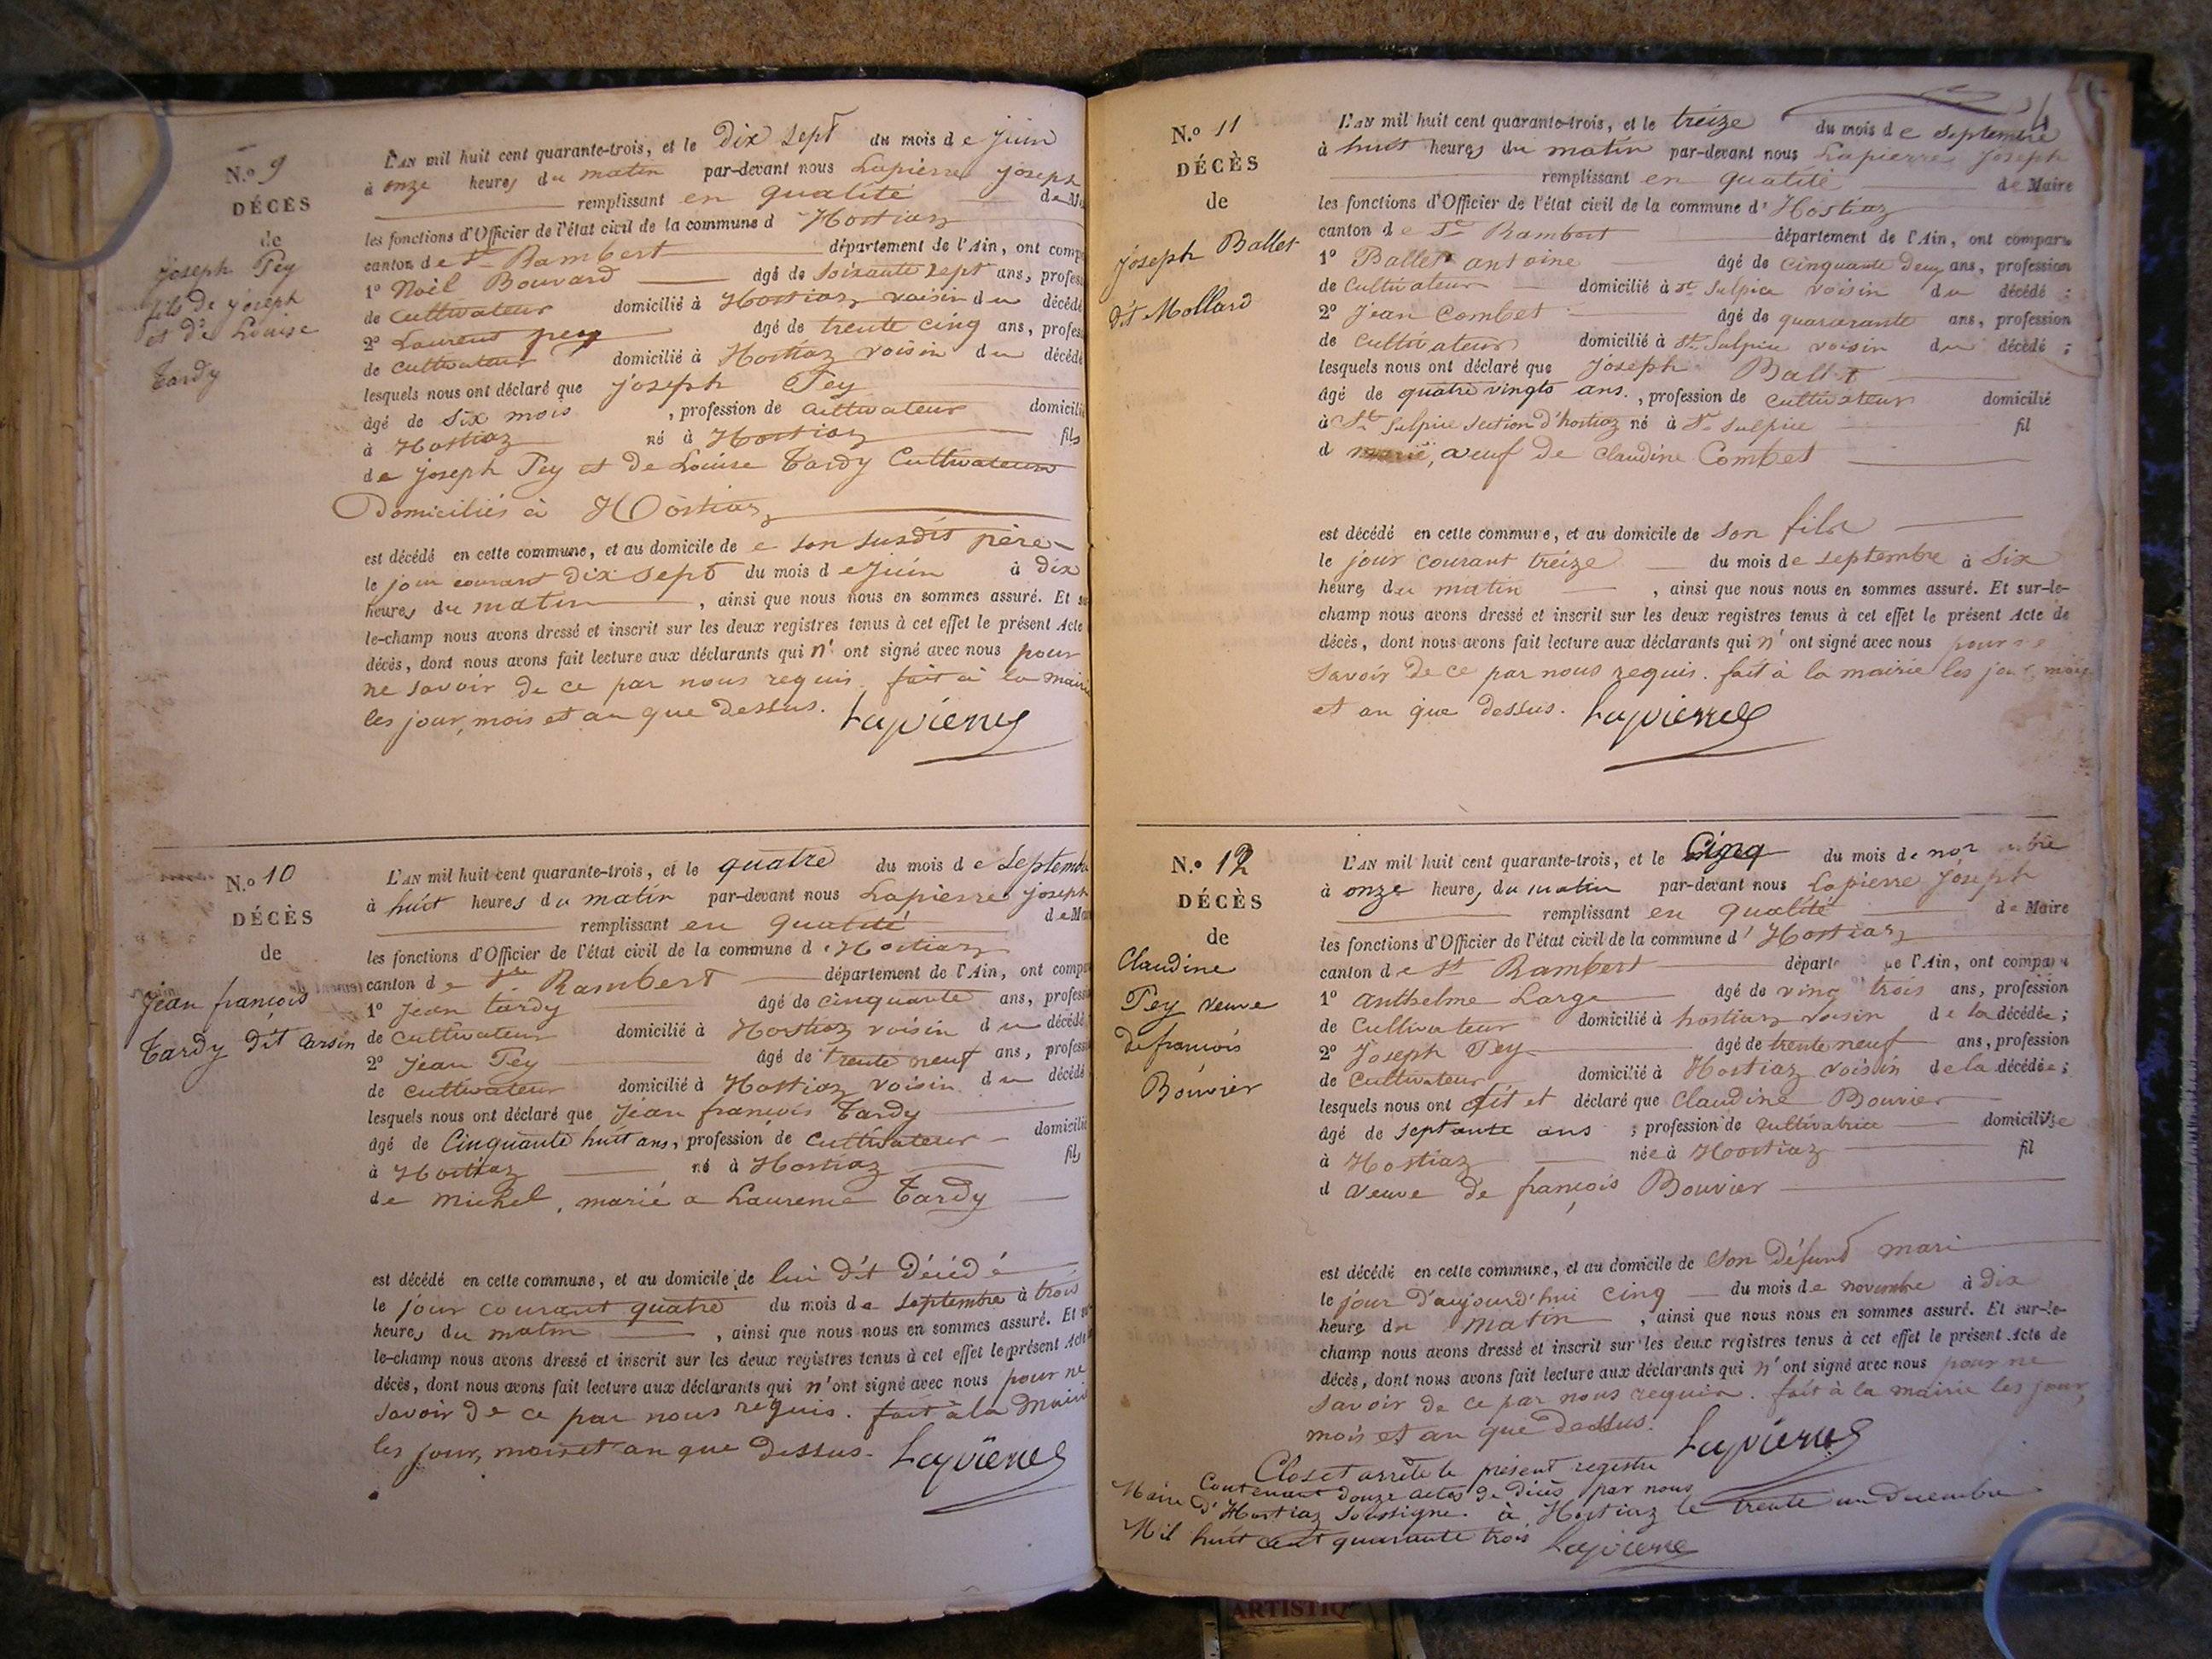 N.o 9
DÉCÈS
de
joseph Pey
fils de joseph
et de Louise
Tardy
L'AN mil huit cent quarante-trois, et le dix sept du mois de juin
à onze heures du matin par-devant nous Lapierre joseph
remplissant en qualité de M
les fonctions d'Officier de l'état civil de la commune d Hostiaz
canton de St Rambert département de l'Ain, ont comp
1o Noël Bouvard âgé de soixante sept ans, profess
de cultivateur domicilié à Hostiaz voisin du décédé
2o Laurent pey âgé de trente cinq ans, profess
de cultivateur domicilié à Hostiaz voisin du décédé
lesquels nous ont déclaré que joseph Pey
âgé de six mois , profession de cultivateur domicilié
à Hostiaz né à Hostiaz fils
de joseph Pey et de Louise Tardy Cultivateurs
Domiciliés à Hostiaz
est décédé en cette commune, et au domicile de e son susdit père
le jour courant dix sept du mois de juin à dix
heures du matin , ainsi que nous nous en sommes assuré. Et su
le-champ nous avons dressé et inscrit sur les deux registres tenus à cet effet le présent Acte
décès, dont nous avons fait lecture aux déclarants qui n' ont signé avec nous pour
ne savoir de ce par nous requis. fait à la mairie
les jour, mois et an que dessus. Lapierre
N.o 10
DÉCÈS
de
Jean françois
Tardy dit arsin
L'AN mil huit cent quarante-trois, et le quatre du mois de septemb
à huit heures du matin par-devant nous Lapierre joseph
remplissant en qualité de Mai
les fonctions d'Officier de l'état civil de la commune d'Hostiaz
canton de St Rambert département de l'Ain, ont comp
1o Jean tardy âgé de cinquante ans, professi
de cultivateur domicilié à Hostiaz voisin du décédé
2o Jean Pey âgé de trente neuf ans, profess
de cultivateur domicilié à Hostiaz voisin du décédé
lesquels nous ont déclaré que Jean françois Tardy
âgé de Cinquante huit ans, profession de cultivateur domicilié
à Hostiaz né à Hostiaz fils
de Michel, marié a Laurence Tardy
est décédé en cette commune, et au domicile de lui dit décédé
le jour courant quatre du mois de septembre à trois
heures du matin , ainsi que nous nous en sommes assuré. Et
le-champ nous avons dressé et inscrit sur les deux registres tenus à cet effet le présent Acte
décès, dont nous avons fait lecture aux déclarants qui n'ont signé avec nous pour ne
savoir de ce par nous requis. fait à la Mairie
les jour, mois et an que dessus. Lapierre
N.o 11
DÉCÈS
de
joseph Ballet
dit Mollard
L'AN mil huit cent quarante-trois, et le treize du mois de septembre
à huit heures du matin par-devant nous Lapierre joseph
remplissant en qualité de Maire
les fonctions d'Officier de l'état civil de la commune d'Hostiaz
canton de St Rambert département de l'Ain, ont comparu
1o Ballet antoine âgé de cinquante deux ans, profession
de cultivateur domicilié à st Sulpice voisin du décédé ;
2o Jean Combet âgé de quararante ans, profession
de cultivateur domicilié à st Sulpice voisin du décédé ;
lesquels nous ont déclaré que Joseph Ballet
âgé de quatre vingts ans. , profession de cultivateur domicilié
à St Sulpice section d'hostiaz né à St Sulpice fil
d marié, veuf de Claudine Combet
est décédé en cette commune, et au domicile de son fils
le jour courant treize du mois de septembre à six
heure du matin , ainsi que nous nous en sommes assuré. Et sur-le-
champ nous avons dressé et inscrit sur les deux registres tenus à cet effet le présent Acte de
décès, dont nous avons fait lecture aux déclarants qui n' ont signé avec nous pour ne
savoir de ce par nous requis. fait à la mairie les jour, mois
et an que dessus. Lapierre
N.o 12
DÉCÈS
de
Claudine
Pey veuve
de françois
Bouvier
L'AN mil huit cent quarante-trois, et le Cinq du mois de novembre
à onze heures du matin par-devant nous Lapierre Joseph
remplissant en qualité de Maire
les fonctions d'Officier de l'état civil de la commune d' Hostiaz
canton de St Rambert département de l'Ain, ont comparu
1o anthelme Large âgé de vingt trois ans, profession
de Cultivateur domicilié à hostiaz voisin de la décédée ;
2o Joseph Pey âgé de trente neuf ans, profession
de cultivateur domicilié à Hostiaz voisin de la décédée ;
lesquels nous ont dit et déclaré que Claudine Bouvier
âgé de septante ans ; profession de cultivatrice domiciliée
à Hostiaz née à Hostiaz fil
d veuve de françois Bouvier
est décédé en cette commune, et au domicile de son défunt mari
le jour d'aujourd'hui cinq du mois de novembre à dix
heure du matin , ainsi que nous nous en sommes assuré. Et sur-le-
champ nous avons dressé et inscrit sur les deux registres tenus à cet effet le présent Acte de
décès, dont nous avons fait lecture aux déclarants qui n' ont signé avec nous pour ne
savoir de ce par nous requis. fait à la mairie les jour,
mois et an que dessus. Lapierre
Clos et arrêté le présent registre
Contenant douze actes de décès par nous
Maire d'Hostiaz soussigné. à Hostiaz le trente un décembre
Mil huit cent quarante trois Lapierre
ARTISTIQ